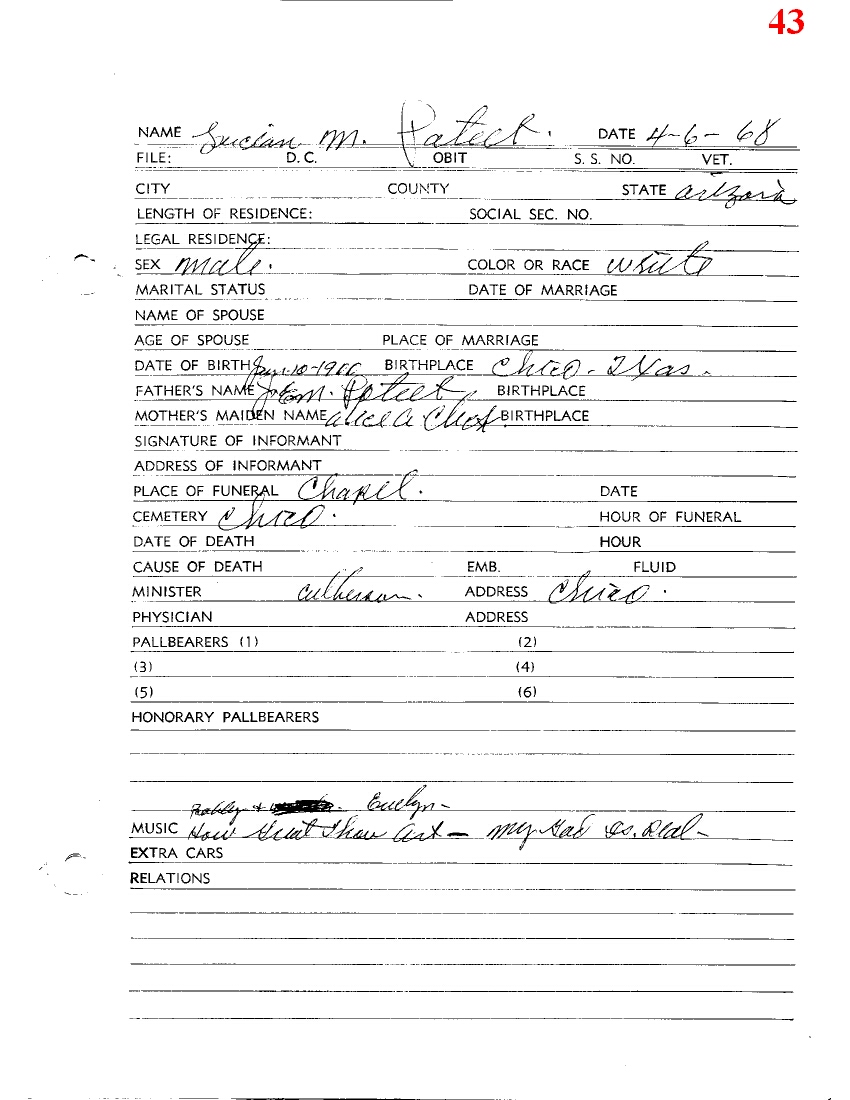 43
NAME Lucian M. Poteet. DATE 4-6-68
FILE: D.C. OBIT S. S. NO. VET.
CITY COUNTY STATE Arizona
LENGTH OF RESIDENCE: SOCIAL SEC. NO.
LEGAL RESIDENCE:
SEX Male. COLOR OR RACE White
MARITAL STATUS DATE OF MARRIAGE
NAME OF SPOUSE
AGE OF SPOUSE PLACE OF MARRIAGE
DATE OF BIRTH 10-1900 BIRTHPLACE Chico - Texas.
FATHER'S NAME M. Poteet BIRTHPLACE
MOTHER'S MAIDEN NAME Alice A BIRTHPLACE
SIGNATURE OF INFORMANT
ADDRESS OF INFORMANT
PLACE OF FUNERAL Chapel. DATE
CEMETERY Chico. HOUR OF FUNERAL
DATE OF DEATH HOUR
CAUSE OF DEATH EMB. FLUID
MINISTER Culberson. ADDRESS Chico.
PHYSICIAN ADDRESS
PALLBEARERS (1) (2)
(3) (4)
(5) (6)
HONORARY PALLBEARERS
Evelyn -
MUSIC How Great Thou Art - My God Is. Real -
EXTRA CARS
RELATIONS